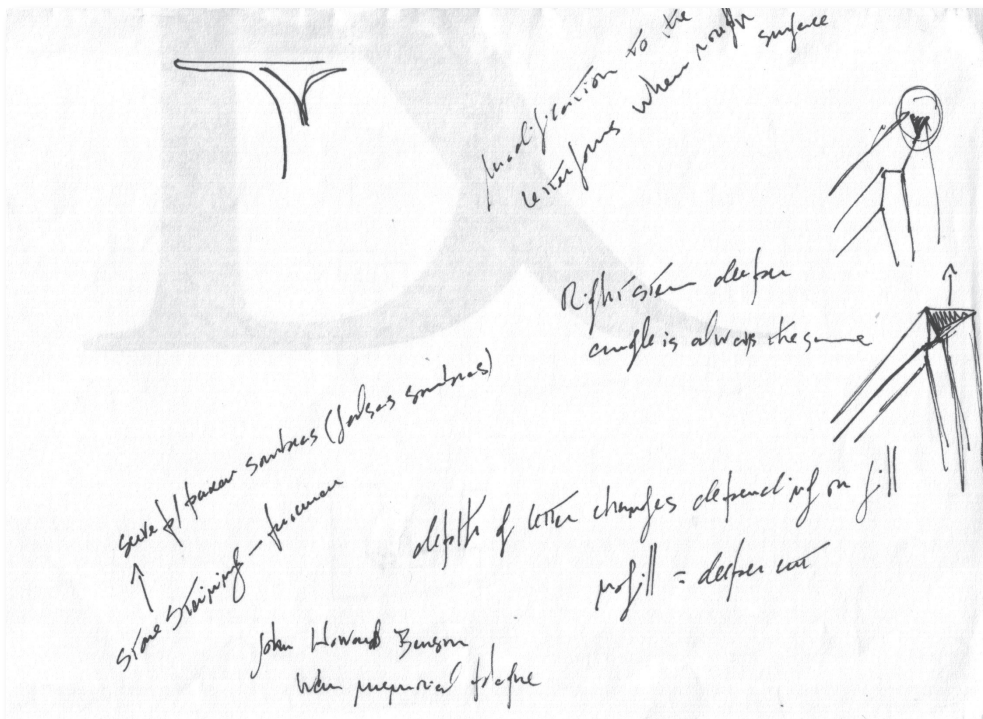 modification to the
letterforms when rough surface
Right stem deeper
angle is always the same
serve p/ fazer sombras (falsas sombras)
stone staining -
depth of letter changes depending on fill
no fill = deeper cut
John Howard Benson
War memorial